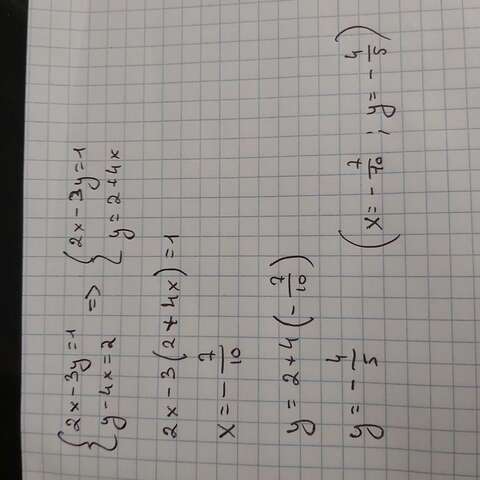 {2x-3y=1 => {2x-3y=1
{y-4x=2 {y=2+4x
2x-3(2+4x)=1
x=-7/10
y=2+4(-7/10)
y=-4/5
(x=-7/10; y=-4/5)